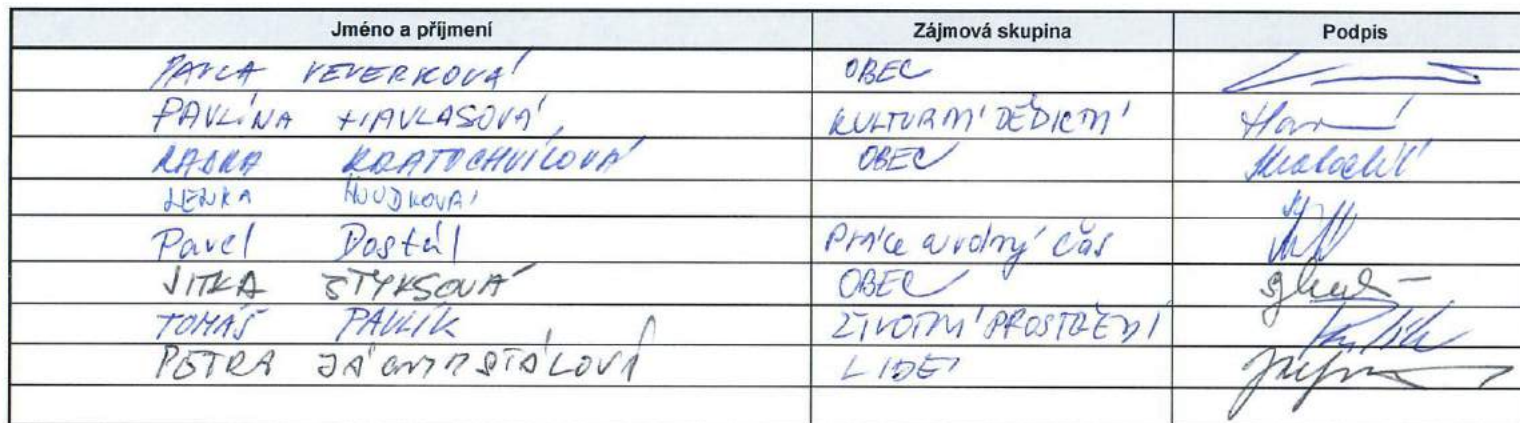 Jméno a příjmení Zájmová skupina Podpis
PAVLA VEVERKOVÁ OBEC
PAVLÍNA HAVLASOVÁ KULTURNÍ DĚDICTVÍ
RADKA KRATOCHVÍLOVÁ OBEC
LENKA
Pavel Dostál Práce a volný čas
JITKA STYKSOVÁ OBEC
TOMÁŠ PAVLÍK ŽIVOTNÍ PROSTŘEDÍ
PETRA LIDÉ